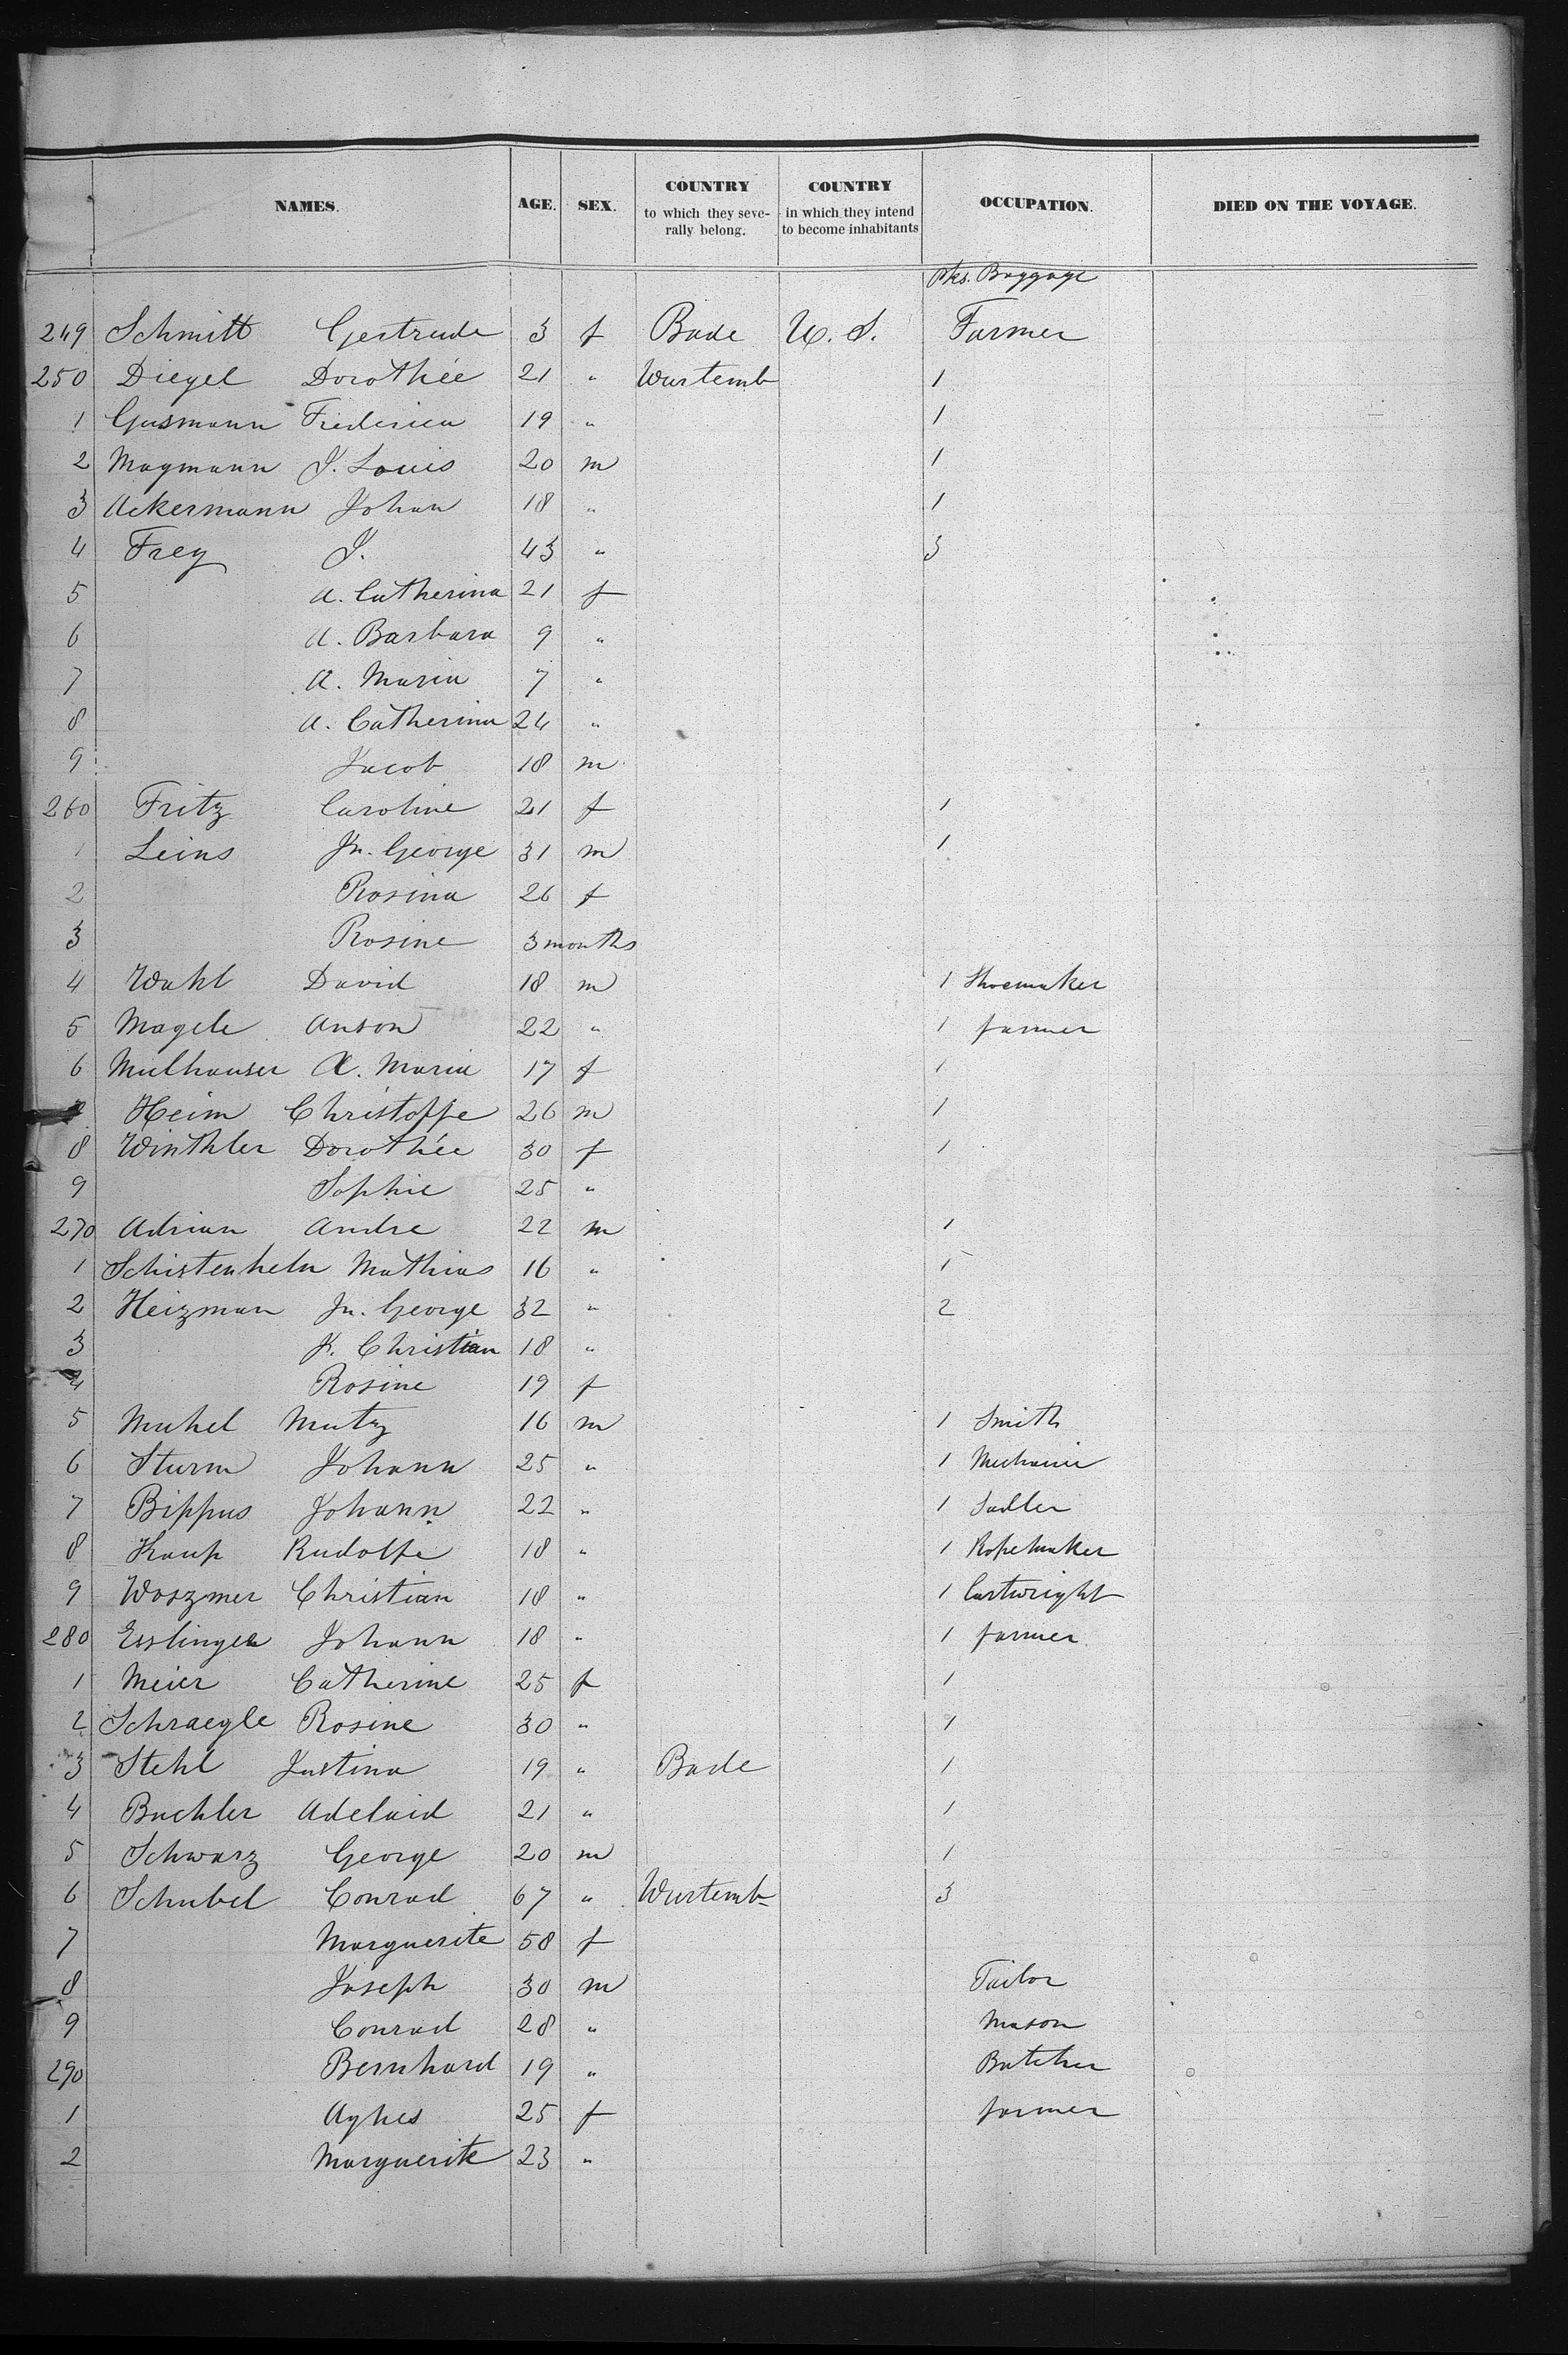 NAMES. AGE. SEX. COUNTRY to which they seve-rally belong. COUNTRY in which they intend to become inhabitants OCCUPATION. DIED ON THE VOYAGE.
Pks. Baggage
249 Schmitt Gertrude 3 f Bade U. S. Farmer
250 Diegel Dorothée 21 " Wurtemb 1
1 Gusmann Fredericu 19 " 1
2 Magmann J. Louis 20 m 1
3 Ackermann Johan 18 " 1
4 Frey J. 43 " 3
5 A. Catherina 21 f
6 A. Barbara 9 "
7 A. Maria 7 "
8 A. Catherina 24 "
9 Jacob 18 m
260 Fritz Caroline 21 f 1
1 Leins Jn. George 31 m 1
2 Rosina 26 f
3 Rosine 3 months
4 Wahl David 18 m 1 Shoemaker
5 Magele Anson 22 " 1 farmer
6 Mulhauser A. Maria 17 f 1
7 Heim Christoffe 26 m 1
8 Winthler Dorothée 30 f 1
9 Sophie 25 "
270 Adrian Andre 22 m 1
1 Schistenheln Mathias 16 " 1
2 Heizman Jn. George 32 " 2
3 J. Christian 18 "
4 Rosine 19 f
5 Muhel Mutz 16 m 1 Smith
6 Sturm Johann 25 " 1 Mechanic
7 Bippus Johann 22 " 1 Sadler
8 Kaup Rudolfe 18 " 1 Ropemaker
9 Woszmer Christian 18 " 1 Cartwright
280 Esslinger Johann 18 " 1 farmer
1 Meier Catherine 25 f 1
2 Schraegle Rosine 30 " 1
3 Stehl Justina 19 " Bade 1
4 Buchler Adelaid 21 " 1
5 Schwarz George 20 m 1
6 Schubel Conrad 67 " Wurtemb 3
7 Marguerite 58 f
8 Joseph 30 m Tailor
9 Conrad 28 " Mason
290 Bernhard 19 " Butcher
1 Aghes 25 f farmer
2 Marguerite 23 "